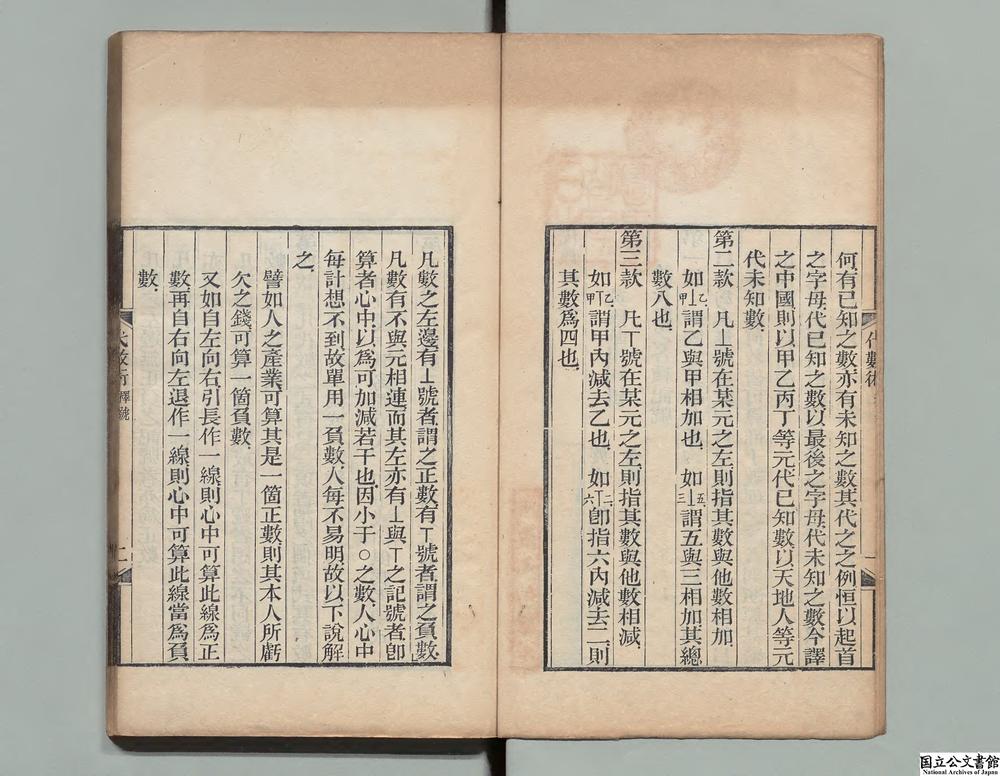 何有已知之數亦有未知之數其代之之例恒以起首
之字母代已知之數以最後之字母代未知之數今譯
之中國則以甲乙丙丁等元代已知數以天地人等元
代未知數
第二款 凡⊥號在某元之左則指其數與他數相加
如甲⊥乙謂乙與甲相加也 如三⊥五謂五與三相加其總
數八也
第三款 凡丅號在某元之左則指其數與他數相減
如甲丅乙謂甲內減去乙也 如六丅二卽指六內減去二則
其數爲四也
凡數之左邊有⊥號者謂之正數有丅號者謂之負數
凡數有不與元相連而其左亦有⊥與丅之記號者卽
算者心中以爲可加減若干也因小于○之數人心中
每計想不到故單用一負數人每不易明故以下說解
之
譬如人之產業可算其是一箇正數則其本人所虧
欠之錢可算一箇負數
又如自左向右引長作一線則心中可算此線爲正
數再自右向左退作一線則心中可算此線當爲負
數
代數術 釋號
二
国立公文書館
National Archives of Japan